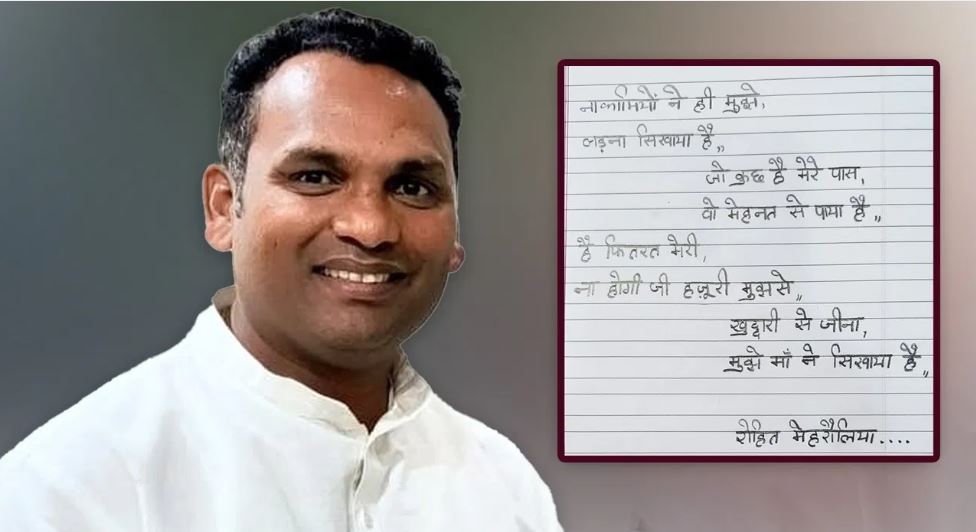 नाकामियों ने ही मुझे,
लड़ना सिखाया है,,
जो कुछ है मेरे पास,
वो मेहनत से पाया है,,
है फितरत मेरी,
ना होगी जी हजूरी मुझसे,,
खुद्दारी से जीना,
मुझे माँ ने सिखाया है,,
रोहित मेहरौलिया....